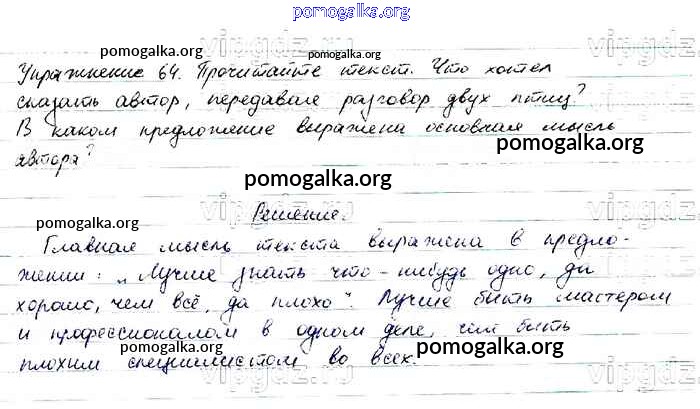 pomogalka.org
pomogalka.org pomogalka.org vipgdz.ru
Упражнение 64. Прочитайте текст. Что хотел
сказать автор, передавая разговор двух птиц?
В каком предложение выражена основная мысль
автора?
pomogalka.org pomogalka.org
pomogalka.org
pomogalka.org vipgdz
Решение.
Главная мысль текста выражена в предло-
жении: „Лучше знать что-нибудь одно, да
хорошо, чем всё, да плохо". Лучше быть мастером
и профессионалом в одном деле, чем быть
плохим специалистом во всех.
pomogalka.org pomogalka.org
pomogalka.org
pomogalka.org pomogalka.org
vipgdz.ru